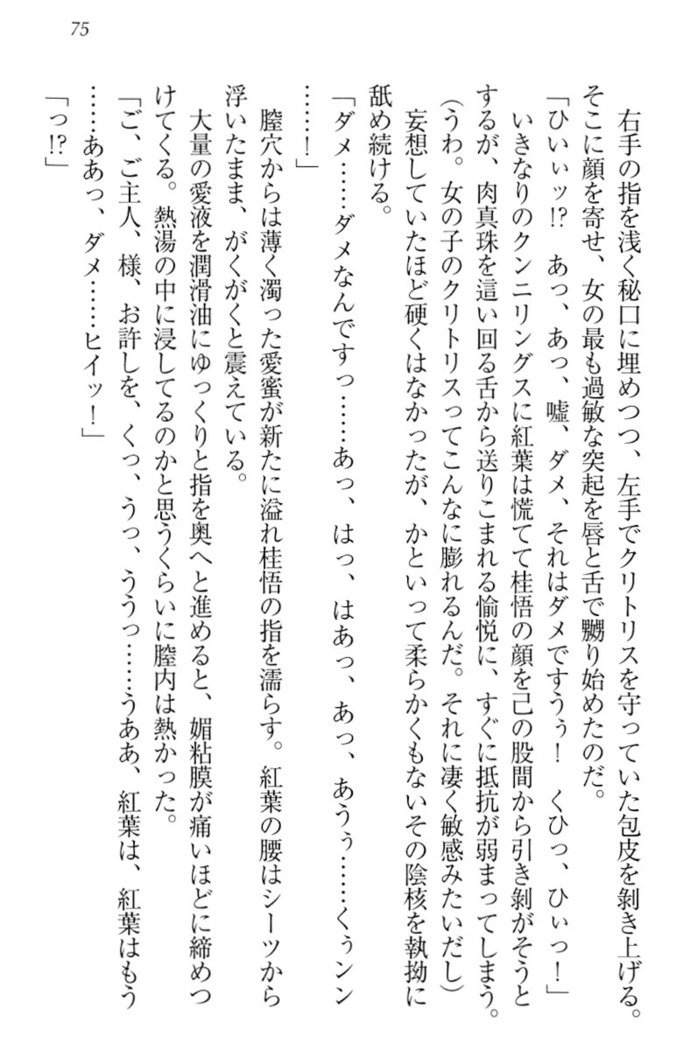 75
右手の指を浅く秘口に埋めつつ、左手でクリトリスを守っていた包皮を剝き上げる。
そこに顔を寄せ、女の最も過敏な突起を唇と舌で嬲り始めたのだ。
「ひいぃッ!?　あっ、あっ、嘘、ダメ、それはダメですうぅ！　くひっ、ひぃっ！」
いきなりのクンニリングスに紅葉は慌てて桂悟の顔を己の股間から引き剝がそうと
するが、肉真珠を這い回る舌から送りこまれる愉悦に、すぐに抵抗が弱まってしまう。
(うわ。女の子のクリトリスってこんなに膨れるんだ。それに凄く敏感みたいだし)
妄想していたほど硬くはなかったが、かといって柔らかくもないその陰核を執拗に
舐め続ける。
「ダメ……ダメなんですっ……あっ、はっ、はあっ、あっ、あうぅ……くぅンン
……！」
膣穴からは薄く濁った愛蜜が新たに溢れ桂悟の指を濡らす。紅葉の腰はシーツから
浮いたまま、がくがくと震えている。
大量の愛液を潤滑油にゆっくりと指を奥へと進めると、媚粘膜が痛いほどに締めつ
けてくる。熱湯の中に浸してるのかと思うくらいに膣内は熱かった。
「ご、ご主人、様、お許しを、くっ、うっ、ううっ……うああ、紅葉は、紅葉はもう
……ああっ、ダメ……ヒイッ！」
「っ!?」